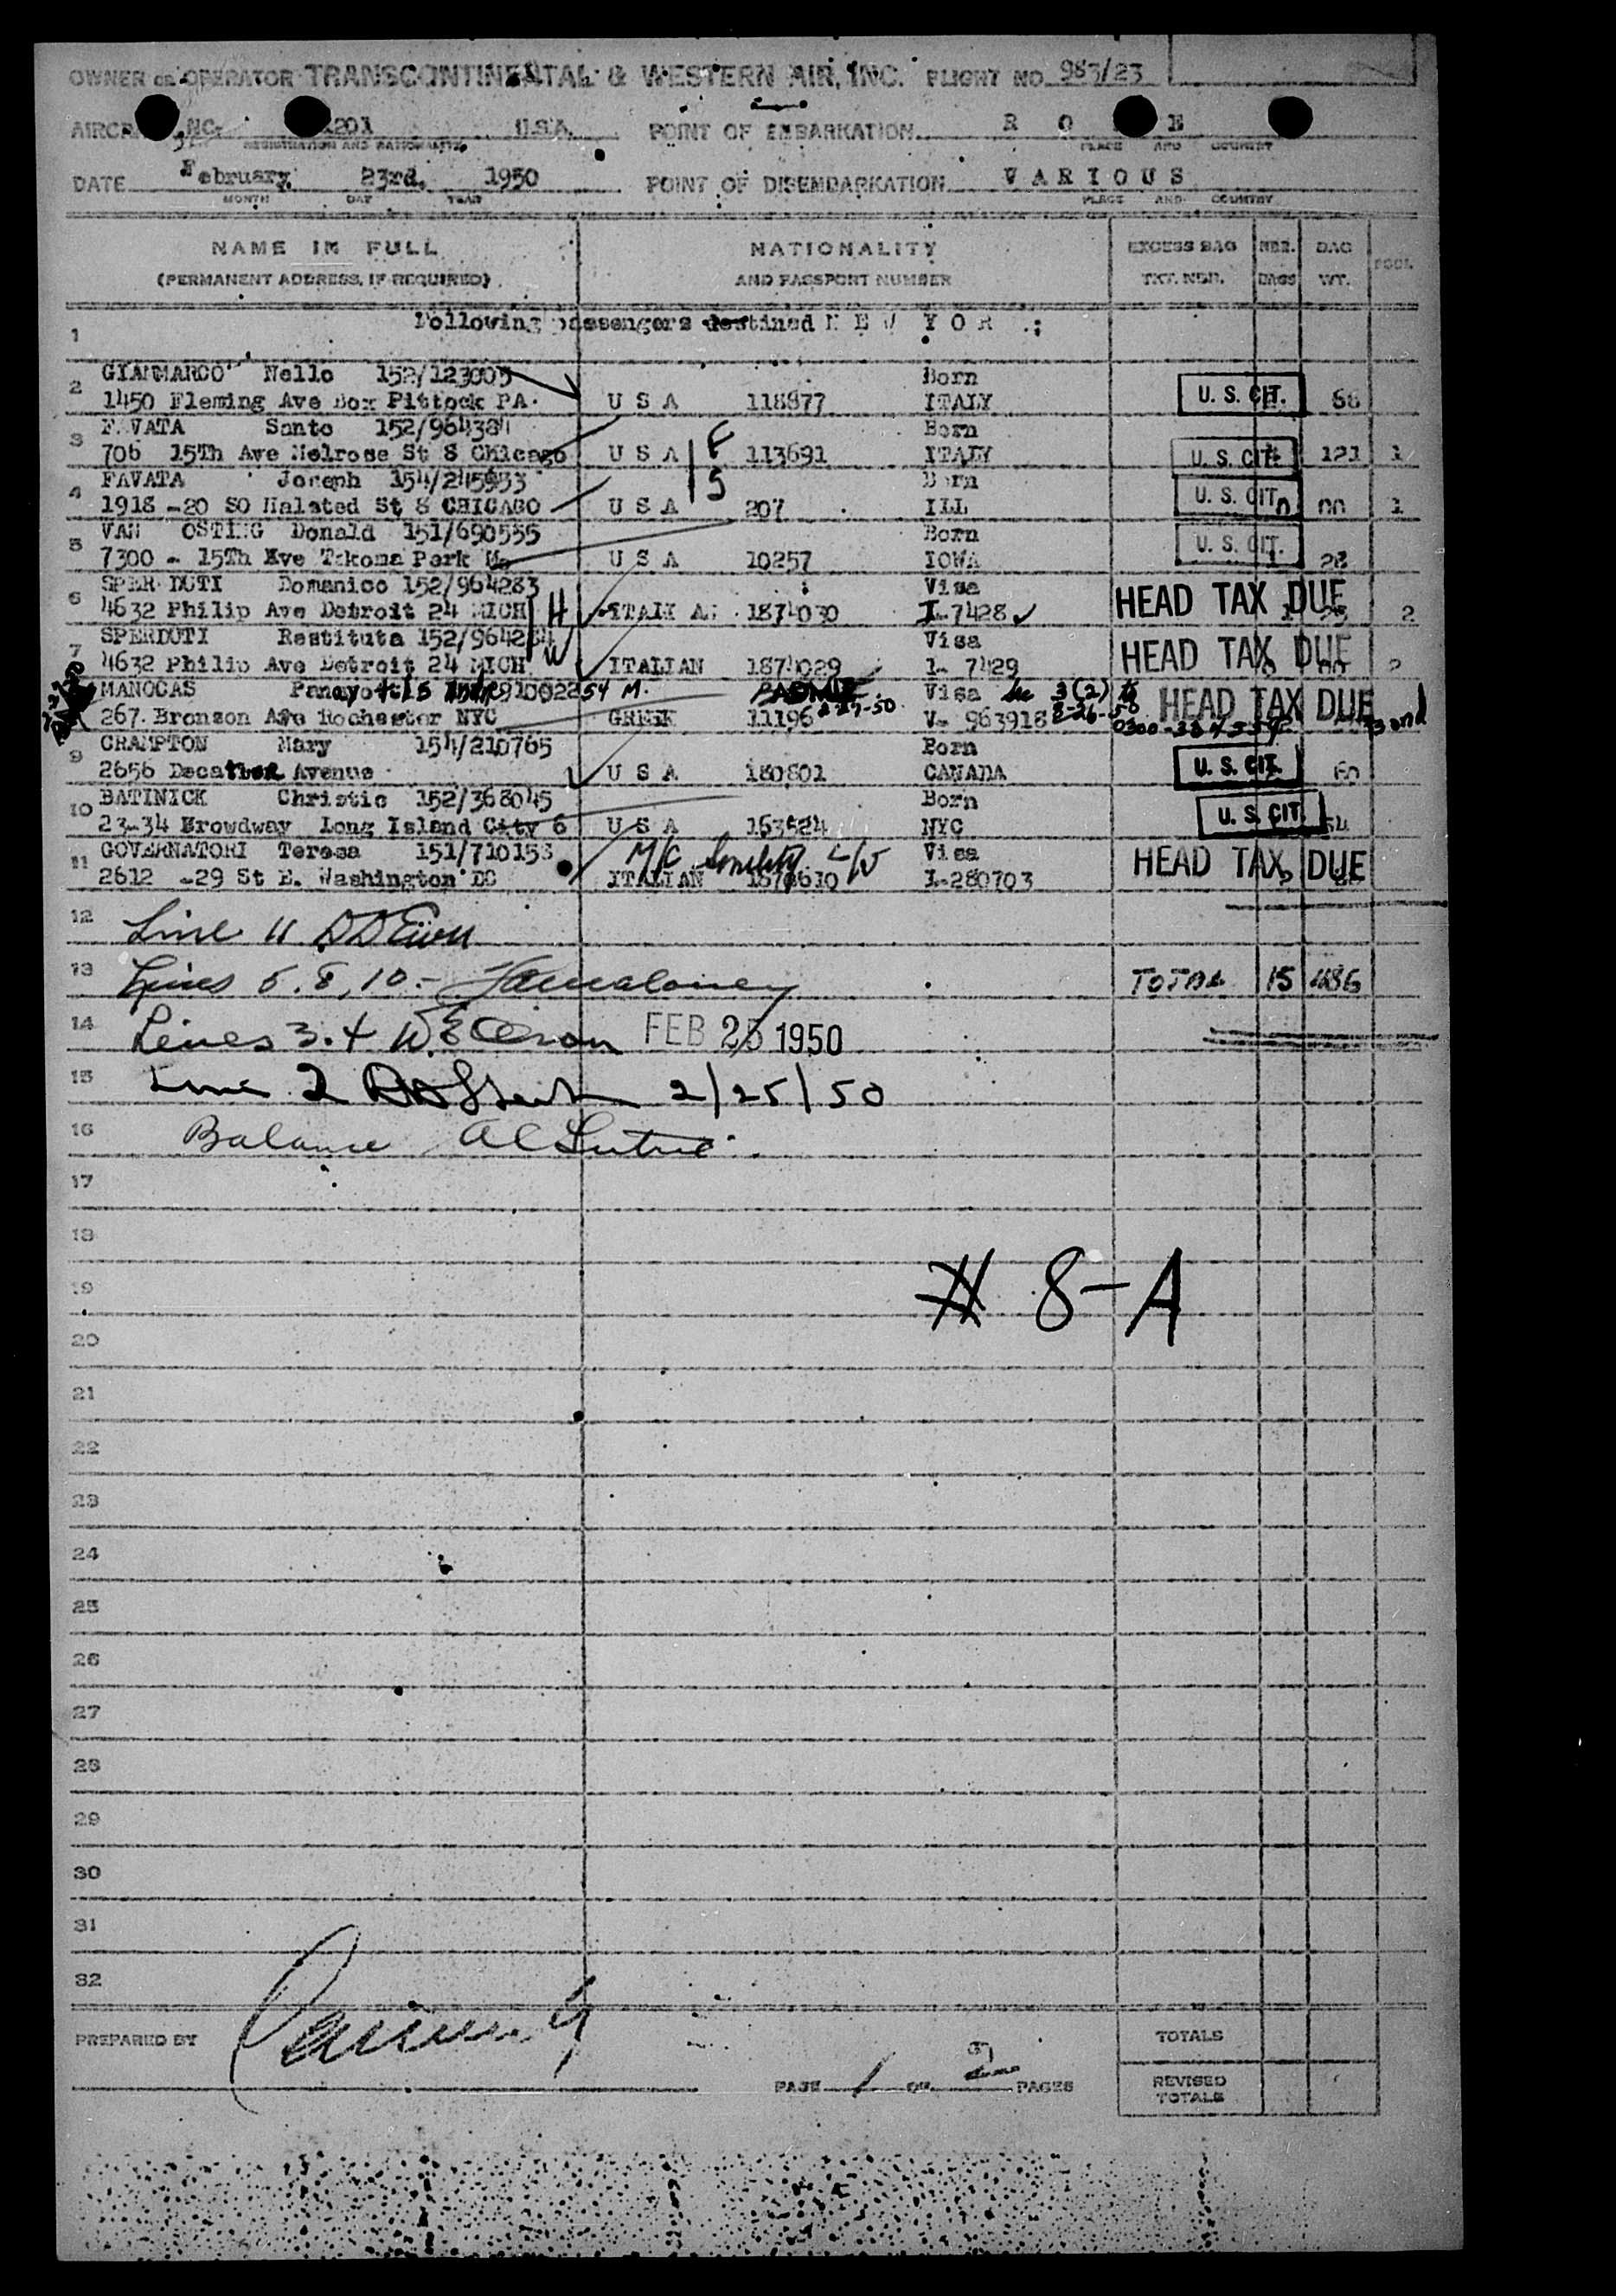 OWNER OR OPERATOR TRANSCONTINENTAL & WESTERN AIR, INC. FLIGHT NO. 983/23
AIRCRAFT NC. 201 U.S.A. POINT OF EMBARKATION R O E
REGISTRATION AND NATIONALITY PLACE AND COUNTRY
DATE February 23rd, 1950 POINT OF DISEMBARKATION V A R I O U S
MONTH DAY YEAR PLACE AND COUNTRY
NAME IN FULL NATIONALITY EXCESS BAG NBR. BAG
(PERMANENT ADDRESS, IF REQUIRED) AND PASSPORT NUMBER TKT. NBR. BAGS WT. POOL
1 Following passengers destined N E W Y O R :
GIANMARCO Nello 152/123005 Born
2 1450 Fleming Ave Box Pittock PA. U S A 118877 ITALY U. S. CIT. 68
F. VATA Santo 152/964384 Born
3 706 15Th Ave Melrose St 8 Chicago U S A F 113691 ITALY U. S. CIT. 121 1
FAVATA Joseph 154/245933 Born
4 1918 -20 SO Halsted St 8 CHICAGO U S A S 207 ILL U. S. CIT. 00 1
VAN OSTING Donald 151/690555 Born
5 7300 - 15Th Ave Takoma Park U S A 10257 IOWA U. S. CIT. 28
SPER DUTI Domanico 152/964283 Visa
6 4632 Philip Ave Detroit 24 MICH H ITALIAN 1874030 I-7428 HEAD TAX DUE 1 25 2
SPERDUTI Restituta 152/964284 Visa
7 4632 Philip Ave Detroit 24 MICH W ITALIAN 1874029 I- 7429 HEAD TAX DUE 00 2
MANOCAS Panayotis 91002254 M. 2-27-50 Visa Sec 3(2) 2-26-50
267. Bronson Ave Rochester NYC GREEK 11196 V- 963918 0300-384554 HEAD TAX DUE Bond
CRAMPTON Mary 154/210765 Born
9 2656 Decatur Avenue U S A 180801 CANADA U. S. CIT. 60
BATINICK Christic 152/368045 Born
10 23-34 Browdway Long Island City 6 U S A 163524 NYC U. S. CIT 54
GOVERNATORI Teresa 151/710153 M/C L/V Visa
11 2612 -29 St E. Washington DC ITALIAN 1878610 I-280703 HEAD TAX DUE
12 Line 11
13 Lines 5. 8, 10.- TOTAL 15 486
14 Lines 3.4 FEB 25 1950
15 Line 2 2/25/50
16 Balance
17
18
19 # 8-A
20
21
22
23
24
25
26
27
28
29
30
31
32
PREPARED BY TOTALS
PAGE 1 OF 2 PAGES REVISED
TOTALS